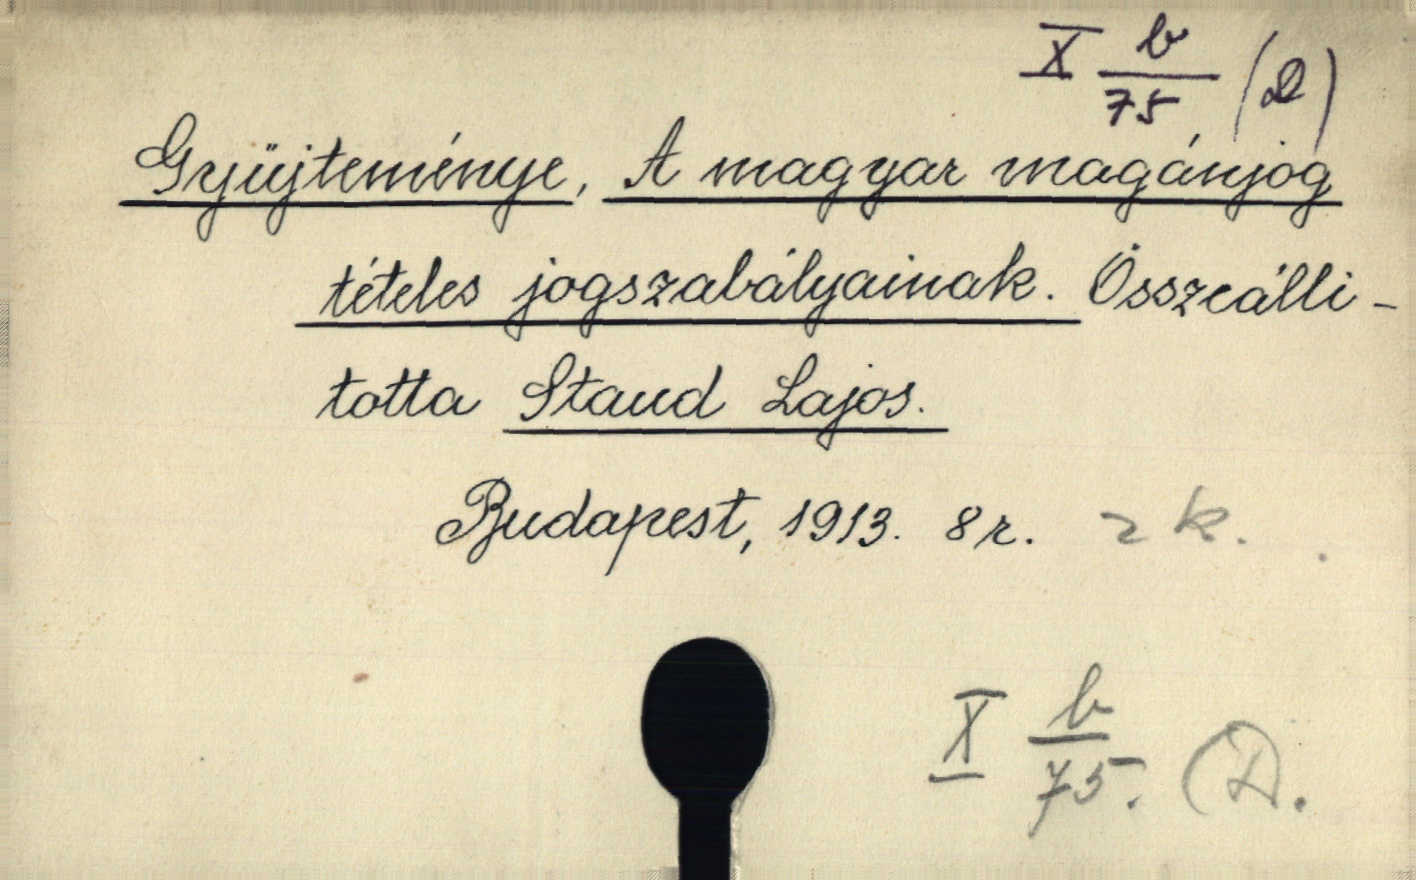 X b/75 (D)
Gyüjteménye, A magyar magánjog
tételes jogszabályainak. Összeálli-
totta Staud Lajos.
Budapest, 1913. 8r. 2 k.
X b/75. (D.